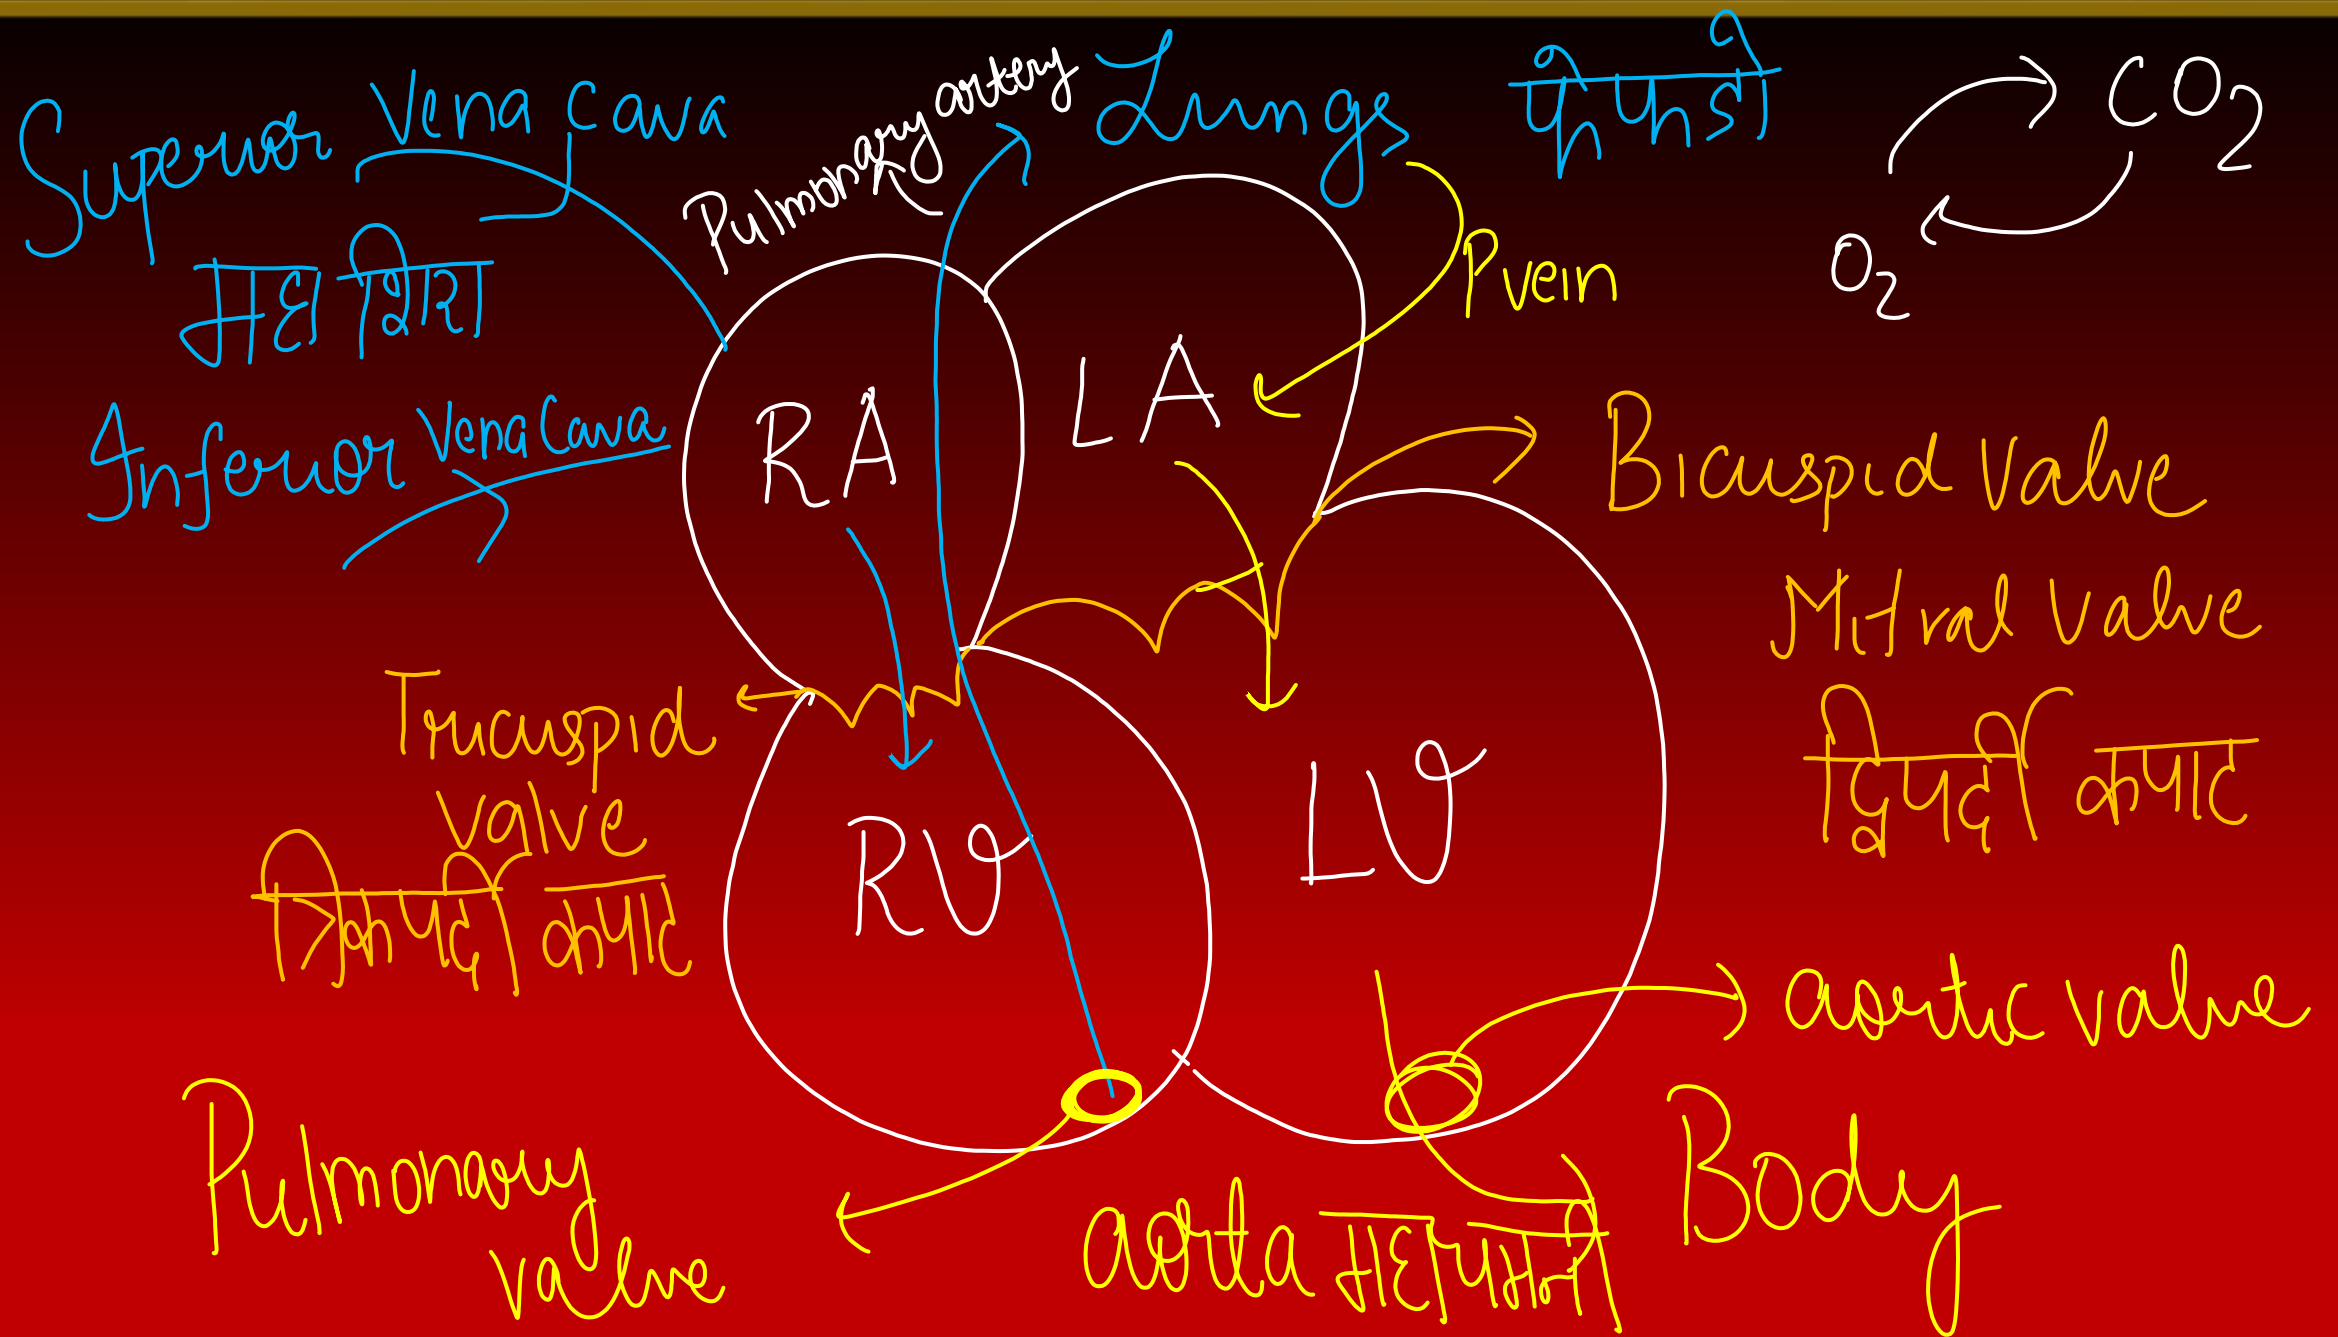 Superior Vena Cava
महाशिरा
Inferior Vena Cava
Pulmonary artery
Lungs फेफड़ो
CO2
O2
P vein
RA
LA
RV
LV
Bicuspid Valve
Mitral Valve
द्विपर्दी कपाट
Tricuspid
valve
त्रिकपर्दी कपाट
aortic valve
Pulmonary
valve
aorta महाधमनी
Body